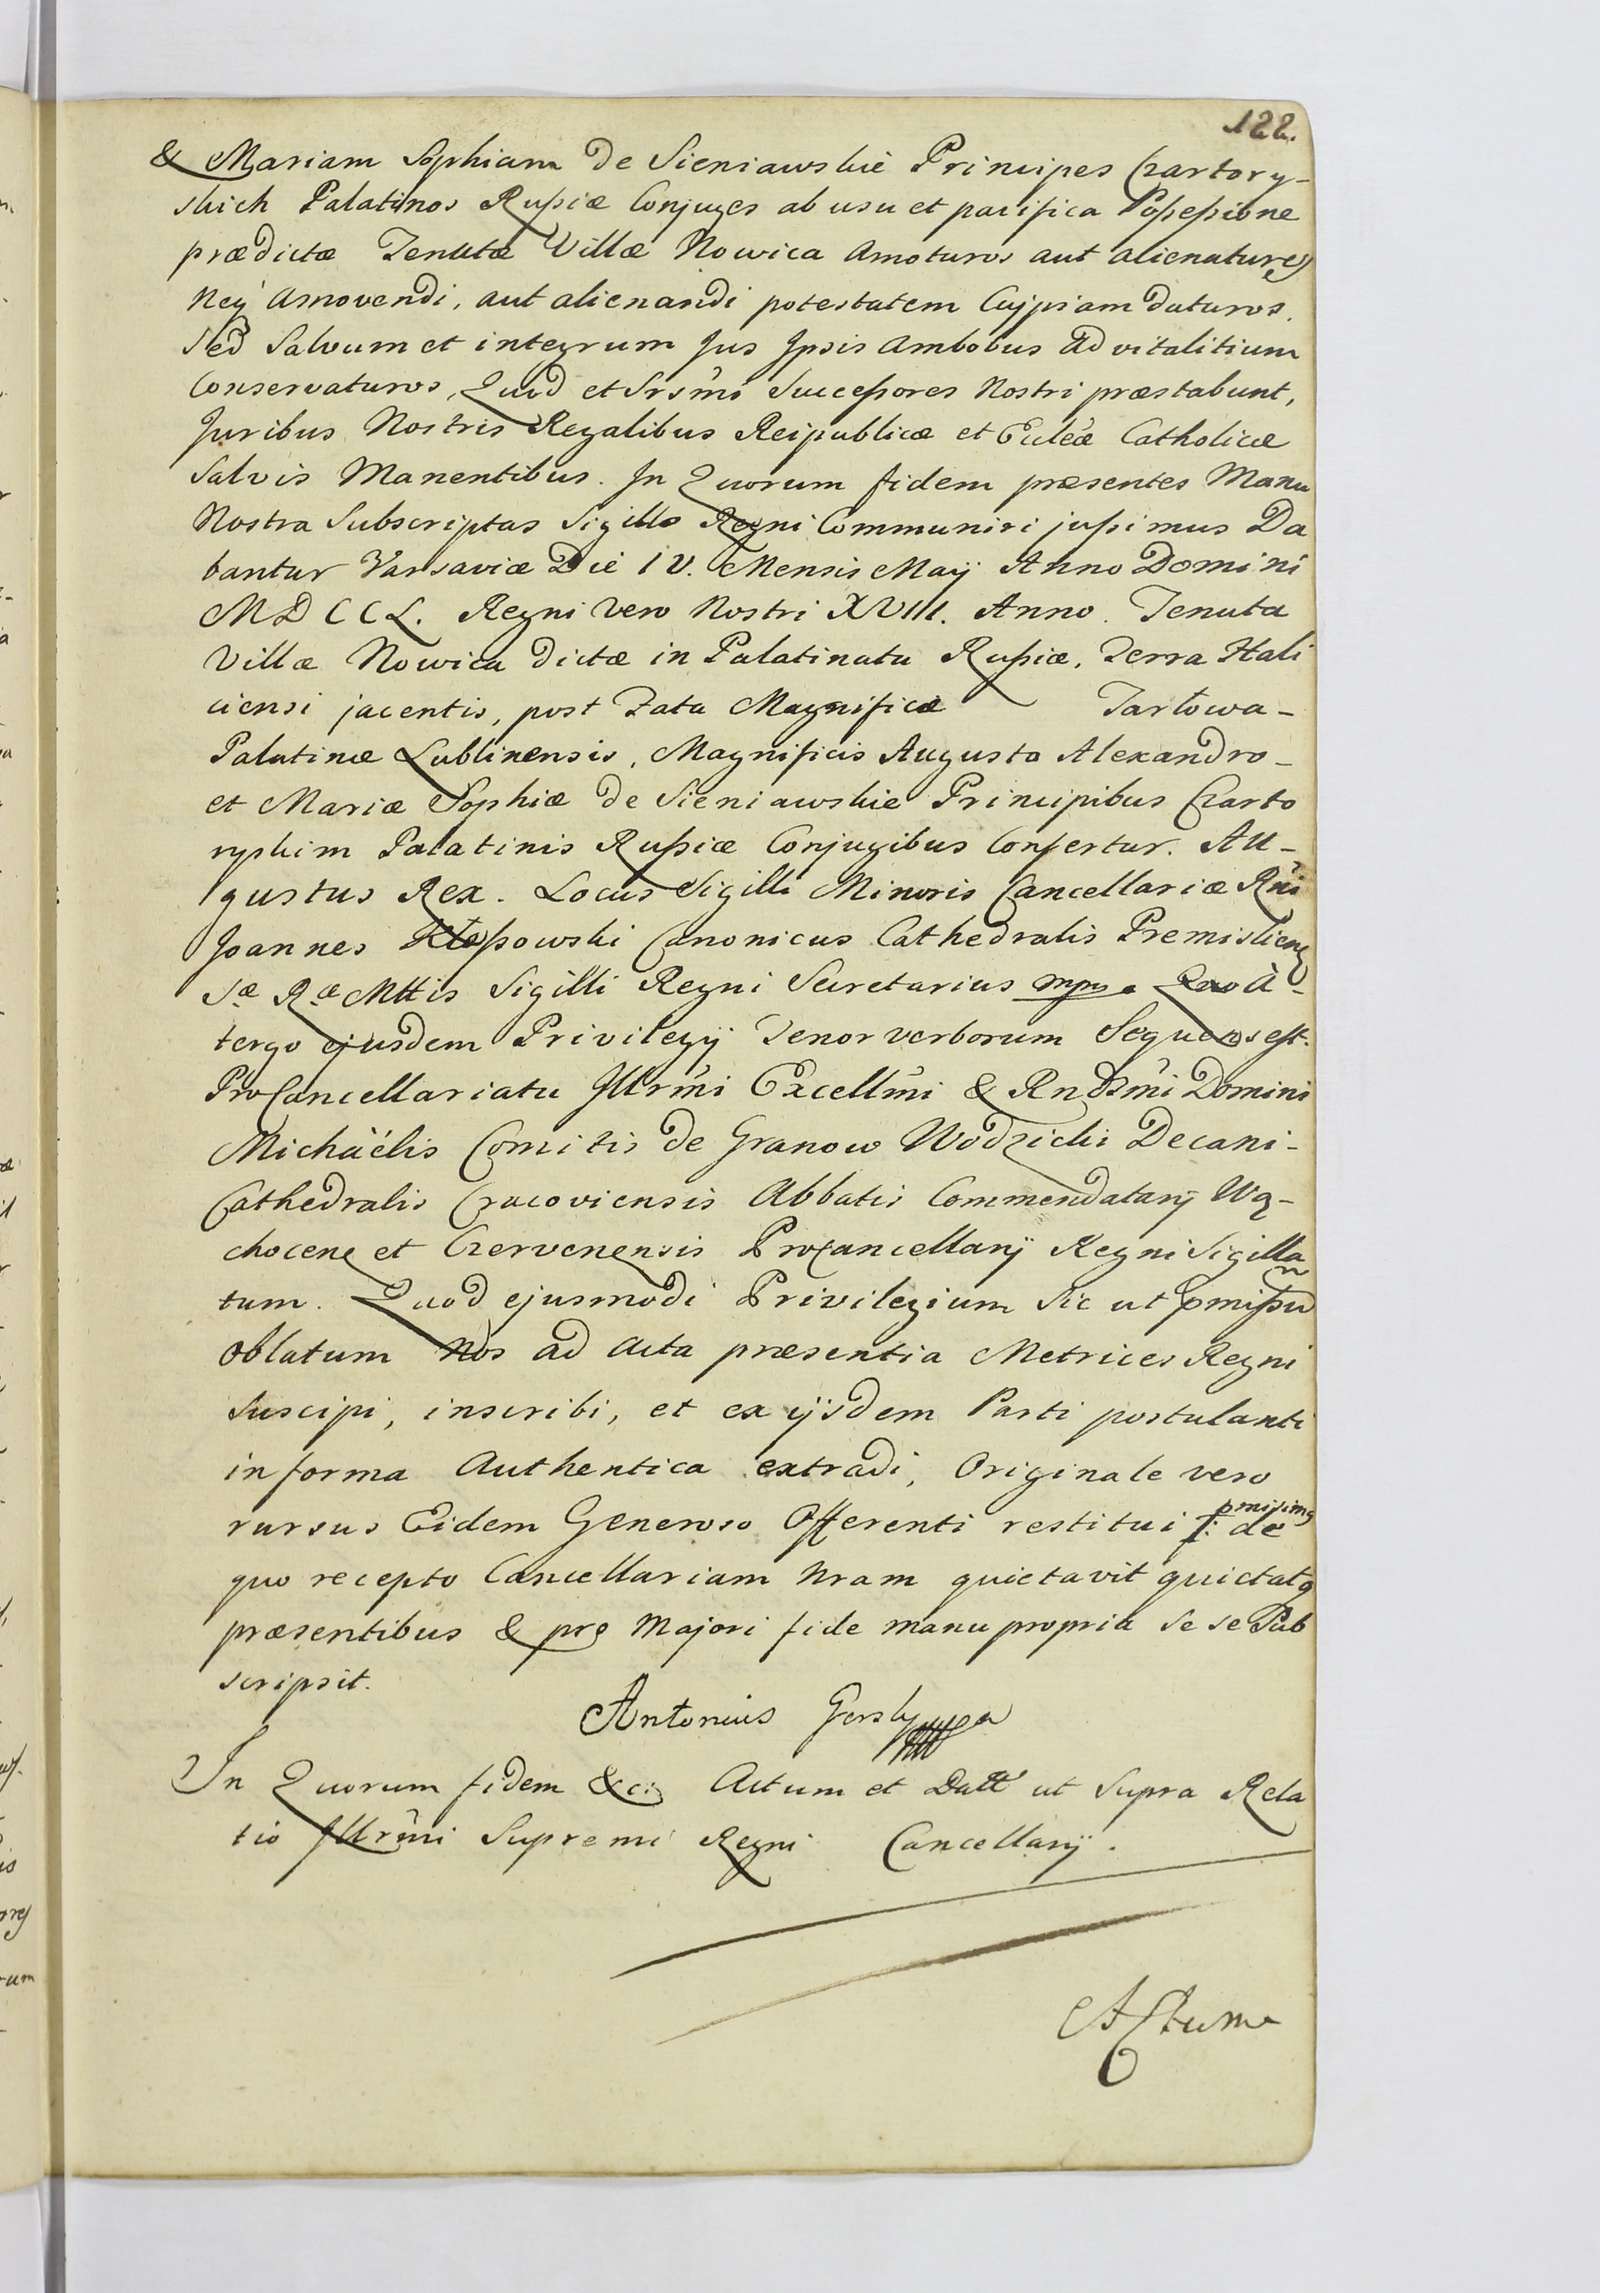 122.
& Mariam Sophiam de Sieniawskie Principes Czartory-
skich Palatinos Russiæ Conjuges ab usu et pacifica Possessione
prædictæ Tenutæ Villæ Nowica Amoturos aut alienaturos
Neq Amovendi, aut alienandi potestatem Cuipiam daturos.
Sed Salvum et integrum Jus Ipsis Ambobus ad vitalitium
Conservaturos, Quod et Srsmi Successores Nostri præstabunt,
Juribus Nostris Regalibus Reipublicæ et Eccleæ Catholicæ
Salvis Manentibus. In Quorum fidem præsentes Manu
Nostra Subscriptas Sigillo Regni Communiri jussimus Da
bantur Varsaviæ Die IV. Mensis Maij Anno Domini
MDCCL. Regni Vero Nostri XVIII. Anno. Tenuta
Villæ Nowica dictæ in Palatinatu Russiæ, Terra Hali
ciensi jacentis, post Fata Magnificæ Tarłowa-
Palatinæ Lublinensis, Magnificis Augusto Alexandro-
et Mariæ Sophiæ de Sieniawskie Principibus Czarto
ryskim Palatinis Russiæ Conjugibus Confertur. Au-
gustus Rex. Locus Sigilli Minoris Cancellariæ Rni
Joannes Kłossowski Canonicus Cathedralis Premislien
Sæ Ræ Mttis Sigilli Regni Secretarius mpp a
tergo ejusdem Privilegij Tenor verborum Sequens est.
ProCancellariatu Illrmi Excellmi & Rndsmi Domini
Michäelis Comitis de Granow Wodzicki Decani-
Cathedralis Cracoviensis Abbatis Commendatarij Wą-
chocen et Czervenensis ProCancellarij Regni Sigilla
tum. Quod ejusmodi Privilegium Sic ut pmissu
Oblatum Nos ad Acta præsentia Metrices Regni
Suscipi, inscribi, et ex ijsdem Parti postulanti
in forma Authentica extradi, Originale vero
rursus Eidem Generoso Offerenti restitui pmisimq de
quo recepto Cancellariam Nram quietavit quietatq
præsentibus & pro Majori fide manu propria Se se Sub
scripsit.
Antonius
In Quorum fidem &c: Actum et Datt ut Supra Rela
tio Illrmi Supremi Regni Cancellarij.